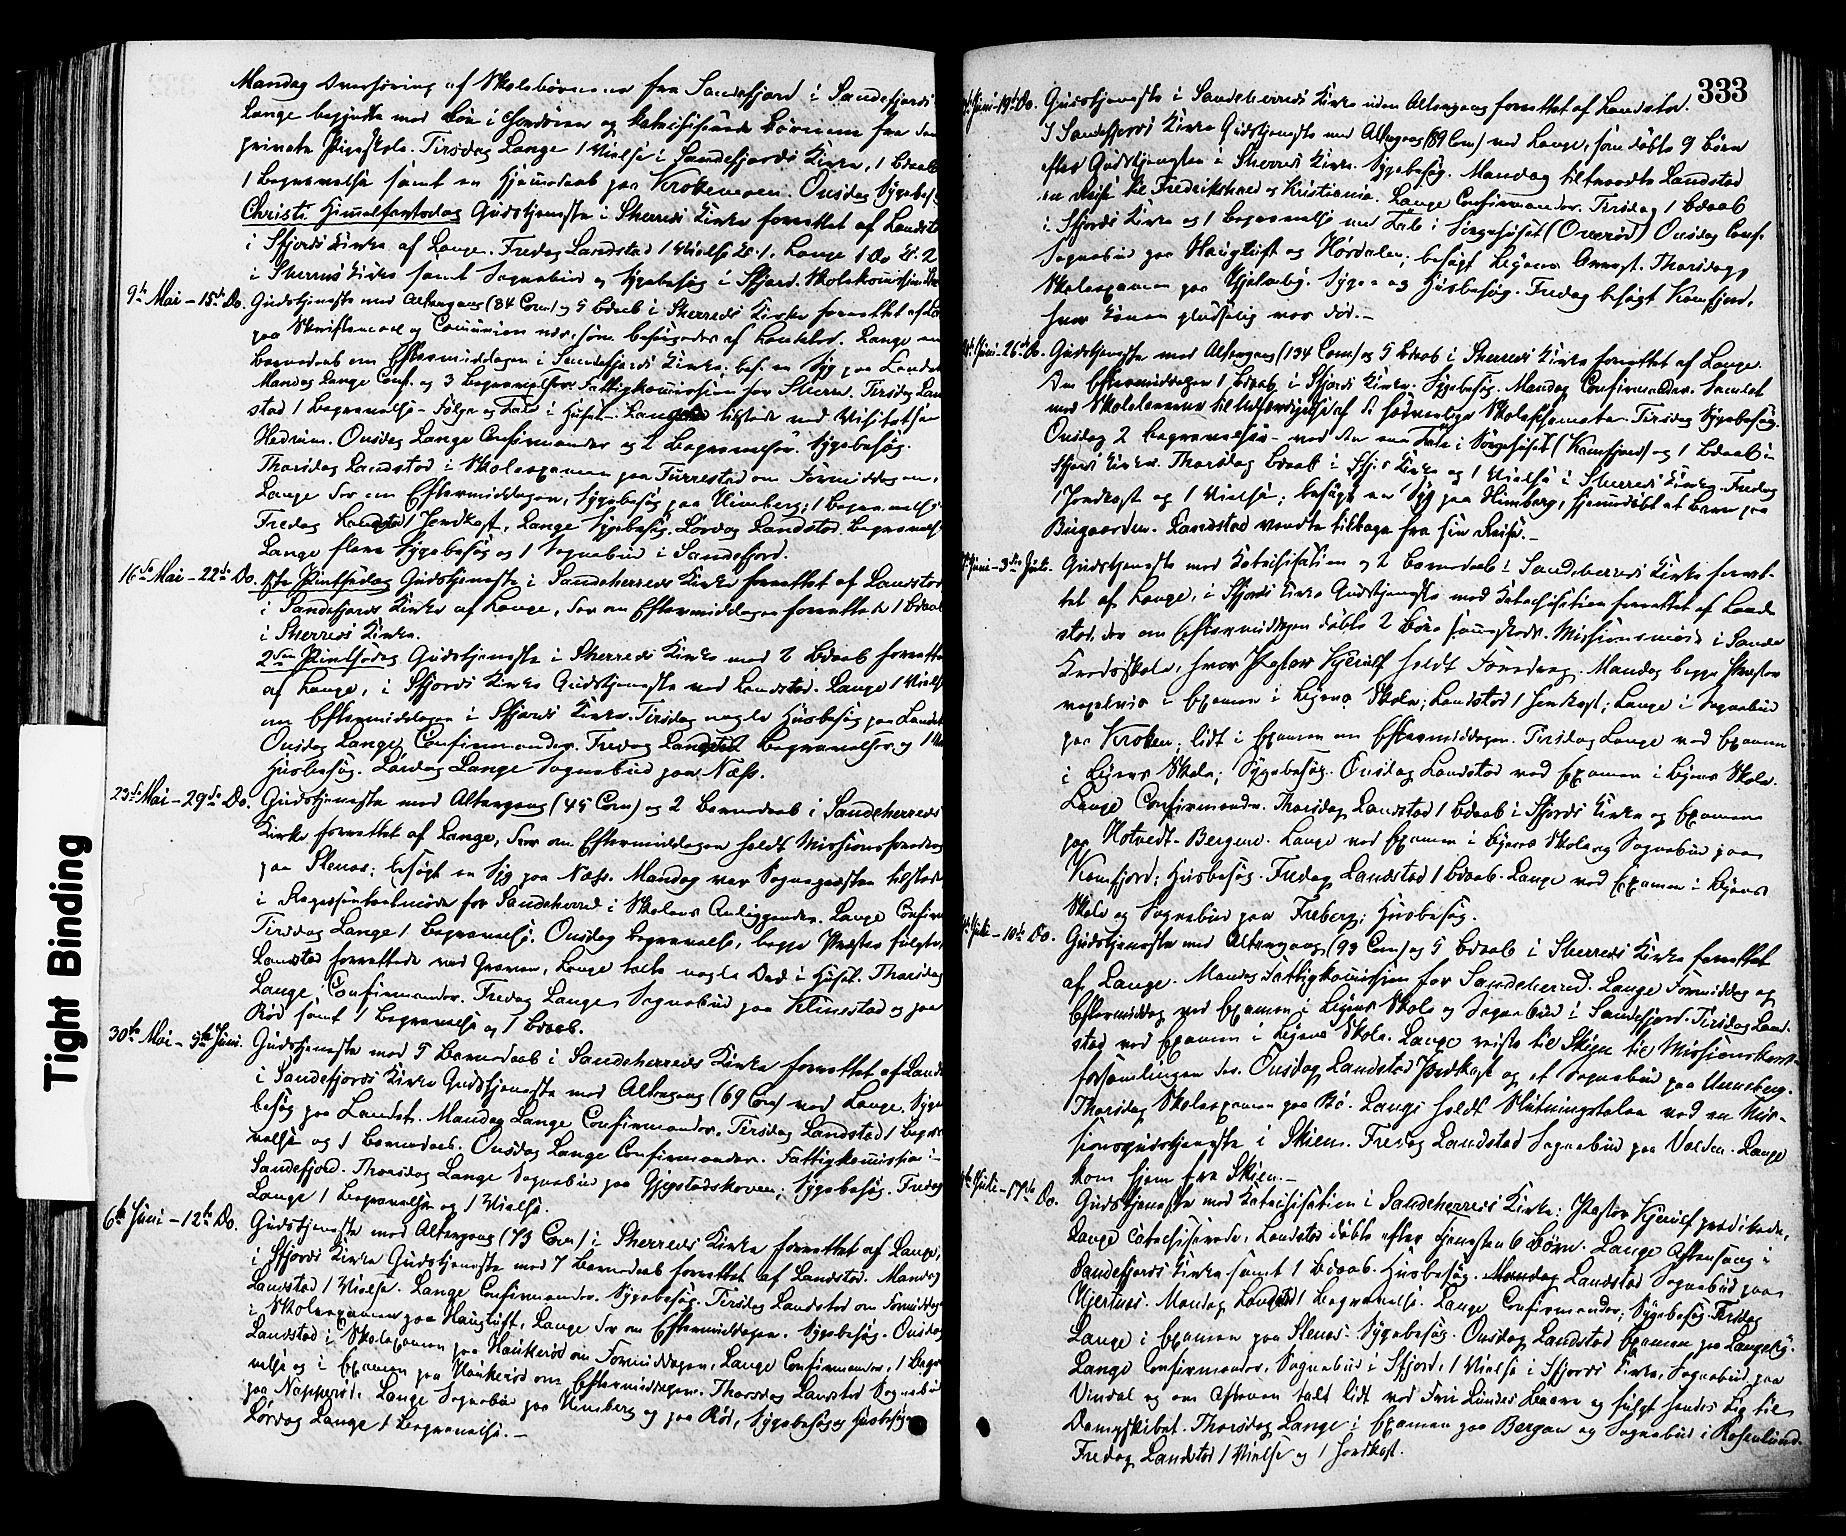 Mandag Overhøring af Skolebørnene fra Sandefjord i Sandefjords
Lange begyndte med Bøn i Grændsen og katechiserede Børnene fra den
private Pigeskole. Tirsdag Lange 1 Vielse i Sandefjords Kirke, 1 Bdaab
1 Begravelse samt en Hjemmedaab paa Krokemoen. Onsdag Sygebesøg
Christi Himmelfartsdag Gudstjeneste i Sherreds Kirke forrettet af Landstad
i Sfjords Kirke af Lange. Fredag Landstad 1 Vielse Kl. 1. Lange 1 Do Kl. 2
i Sherreds Kirke samt Sognebud og Sygebesøg i Sfjord. Skolekommission
9de Mai – 15de Do. Gudstjeneste med Altergang (84 Com) og 5 Bdaab i Sherreds Kirke forrettet af
paa Skriftemaal og Communion nær, som besørgedes af Landstad. Lange en
Barnedaab om Eftermiddagen i Sandefjords Kirke; bes. en Syg paa Landst.
Mandag Lange Conf. og 3 Begravelser. Fattigkommission for Sherred. Tirsdag Land
stad 1 Begravelse – Følge og Tale i Huset. Lange tilstede ved Visitatsen
Hedrum. Onsdag Lange Confirmander og 2 Begravelser. Sygebesøg.
Thorsdag Landstad i Skoleexamen paa Furrestad om Formiddagen,
Lange der om Eftermiddagen, Sygebesøg paa Unneberg; 1 Begravelse
Fredag Landstad 1 Jordkast, Lange Sygebesøg. Lørdag Landstad Begravelse
Lange flere Sygebesøg og 1 Sognebud i Sandefjord.
16de Mai – 22de Do. 1ste Pintsedag Gudstjeneste i Sandeherreds Kirke forrettet af Landstad
i Sandefjords Kirke af Lange, der om Eftermiddagen forrettede 1 Bdaab
i Sherreds Kirke.
2den Pintsedag Gudstjeneste i Sherreds Kirke med 2 Bdaab forrettet
af Lange, i Sfjords Kirke Gudstjeneste ved Landstad. Lange 1 Vielse
om Eftermiddagen i Sfjords Kirke. Tirsdag nogle Husbesøg paa Landet
Onsdag Lange Confirmander. Fredag Landstad Begravelse og 1
Husbesøg. Lørdag Lange Sognebud paa Næss.
23de Mai – 29de Do. Gudstjeneste med Altergang (45 Com) og 2 Barnedaab i Sandeherreds
Kirke forrettet af Lange, der om Eftermiddagen holdt Missionsforedrag
paa Stenas; besøgt en Syg paa Næss. Mandag var Sognepræsten tilstede
i Repræsentantmøde for Sandeherred i Skolens Anliggender. Lange Confirm
Tirsdag Lange 1 Begravelse. Onsdag Begravelse, begge Præster fulgte,
Landstad forrettede ved Graven, Lange talte nogle Ord i Huset. Thorsdag
Lange Confirmander. Fredag Lange Sognebud paa Klinestad og paa
Rød samt 1 Begravelse og 1 Bdaab.
30te Mai – 5te Juni. Gudstjeneste med 5 Barnedaab i Sandeherreds Kirke forrettet af Lands
i Sandefjords Kirke Gudstjeneste med Altergang (69 Com) ved Lange. Syge
besøg paa Landet. Mandag Lange Confirmander. Tirsdag Landstad 1 Begra
velse og 1 Barnedaab. Onsdag Lange Confirmander. Fattigkommission i
Sandefjord. Thorsdag Lange Sognebud paa Gjegstadskoven; Sygebesøg. Fredag
Lange 1 Begravelse og 1 Vielse.
6te Juni – 12te Do. Gudstjeneste med Altergang (73 Com) i Sherreds Kirke forrettet af Lange,
i Sfjords Kirke Gudstjeneste med 7 Barnedaab forrettet af Landstad. Mandag
Landstad 1 Vielse. Lange Confirmander. Sygebesøg. Tirsdag Landstad om Formiddag
i Skoleexamen paa Haugtuft, Lange der om Eftermiddagen. Sygebesøg. Onsdag
Landstad i Skoleexamen paa Haukerød om Formiddagen, Lange Confirmander, 1 Begra
velse og i Examen paa Haukerød om Eftermiddagen. Thorsdag Landstad Sognebud
paa Napperød. Lange Sognebud paa Unneberg og paa Rød, Sygebesøg og Husbesøg
Lørdag Lange 1 Begravelse. –
333
Juni – 19de Do. Gudstjeneste i Sandeherreds Kirke uden Altergang forrettet af Landstad.
I Sandefjords Kirke Gudstjeneste med Altergang (89 Com) ved Lange, som døbte 9 Børn
efter Gudstjenesten i Sherreds Kirke. Sygebesøg. Mandag tiltraadte Landstad
en Reise til Fredrikshald og Kristiania. Lange Confirmander. Tirsdag 1 Bdaab
i Sfjords Kirke og 1 Begravelse med Tale i Sørgehuset (Overød) Onsdag Conf.
Sognebud paa Haugtuft og Hørdalen; besøgt Byens Arrest. Thorsdag
Skoleexamen paa Hjelmby. Syge og Husbesøg. Fredag besøgt Kamfjord,
hvor Konen pludselig var død. –
Juni – 26de Do. Gudstjeneste med Altergang (134 Com) og 5 Bdaab i Sherreds Kirke forrettet af Lange.
Om Eftermiddagen 1 Bdaab i Sfjords Kirke. Sygebesøg. Mandag Confirmander. Samlet
med Skolelærerne til Udfærdigelse af de sædvanlige Skoleschemata. Tirsdag Sygebesøg.
Onsdag 2 Begravelser – ved den ene Tale i Sørgehuset (Kamfjord) og 1 Bdaab i
Sfjords Kirke. Thorsdag Bdaab i Sfjs Kirke og 1 Vielse i Sherreds Kirke. Fredag
1 Jordkast og 1 Vielse; besøgt en Syg paa Himberg, hjemmedøbt et Barn paa
Bugaarden. Landstad vendte tilbage fra sin Reise. –
Juni – 3die Juli. Gudstjeneste med Katechisation og 2 Barnedaab i Sandeherreds Kirke forret-
tet af Lange, i Sfjords Kirke Gudstjeneste med Katechisation forrettet af Land
stad, der om Eftermiddagen døbte 2 Børn sammesteds. Missionsmøde i Sande
Kredsskole, hvor Pastor Kjerulf holdt Foredrag. Mandag begge Præster
vexelvis i Examen i Byens Skole; Landstad 1 Jordkast; Lange i Sognebud
paa Kroken; lidt i Examen om Eftermiddagen. Tirsdag Lange ved Examen
i Byens Skole; Sygebesøg. Onsdag Landstad ved Examen i Byens Skole.
Lange Confirmander. Thorsdag Landstad 1 Bdaab i Sfjords Kirke og Examen
paa Hotvedt-Bergene. Lange ved Examen i Byens Skole og Sognebud paa
Kamfjord; Husbesøg. Fredag Landstad 1 Bdaab. Lange ved Examen i Byens
Skole og Sognebud paa Freberg; Husbesøg.
Juli – 10de Do. Gudstjeneste med Altergang (93 Com) og 5 Bdaab i Sherreds Kirke forrettet
af Lange. Mandag Fattigkommission for Sandeherred. Lange Formiddag og
Eftermiddag ved Examen i Byens Skole og Sognebud i Sandefjord. Tirsdag Land-
stad ved Examen i Byens Skole. Lange reiste til Skien til Missionskreds-
forsamlingen der. Onsdag Landstad Jordkast og et Sognebud paa Unneberg.
Thorsdag Skoleexamen paa Bø. Lange holdt Slutningstalen ved en Mis-
sionsgudstjeneste i Skien. Fredag Landstad Sognebud paa Valden. Lange
kom hjem fra Skien. –
Juli – 17de Do. Gudstjeneste med Katechisation i Sandeherreds Kirke; Pastor Kjerulf prædikede,
Lange catechiserede, Landstad døbte efter Tjenesten 6 Børn. Lange Aftensang i
Sandefjords Kirke samt 1 Bdaab. Husbesøg. Landstad Sognebud paa
Hjertnes. Mandag Landstad 1 Begravelse. Lange Confirmander; Sygebesøg. Tirsdag
Lange i Examen paa Stenas. Sygebesøg. Onsdag Landstad Examen paa Langeby.
Lange Confirmander, Sognebud i Sfjord, 1 Vielse i Sfjords Kirke, Sognebud paa
Vindal og om Aftenen talt lidt ved Fru Lunds Baare og fulgt hendes Lig til
Dampskibet. Thorsdag Lange i Examen paa Bergan og Sognebud i Rosenlund.
Fredag Landstad 1 Vielse og 1 Jordkast.
Tight Binding